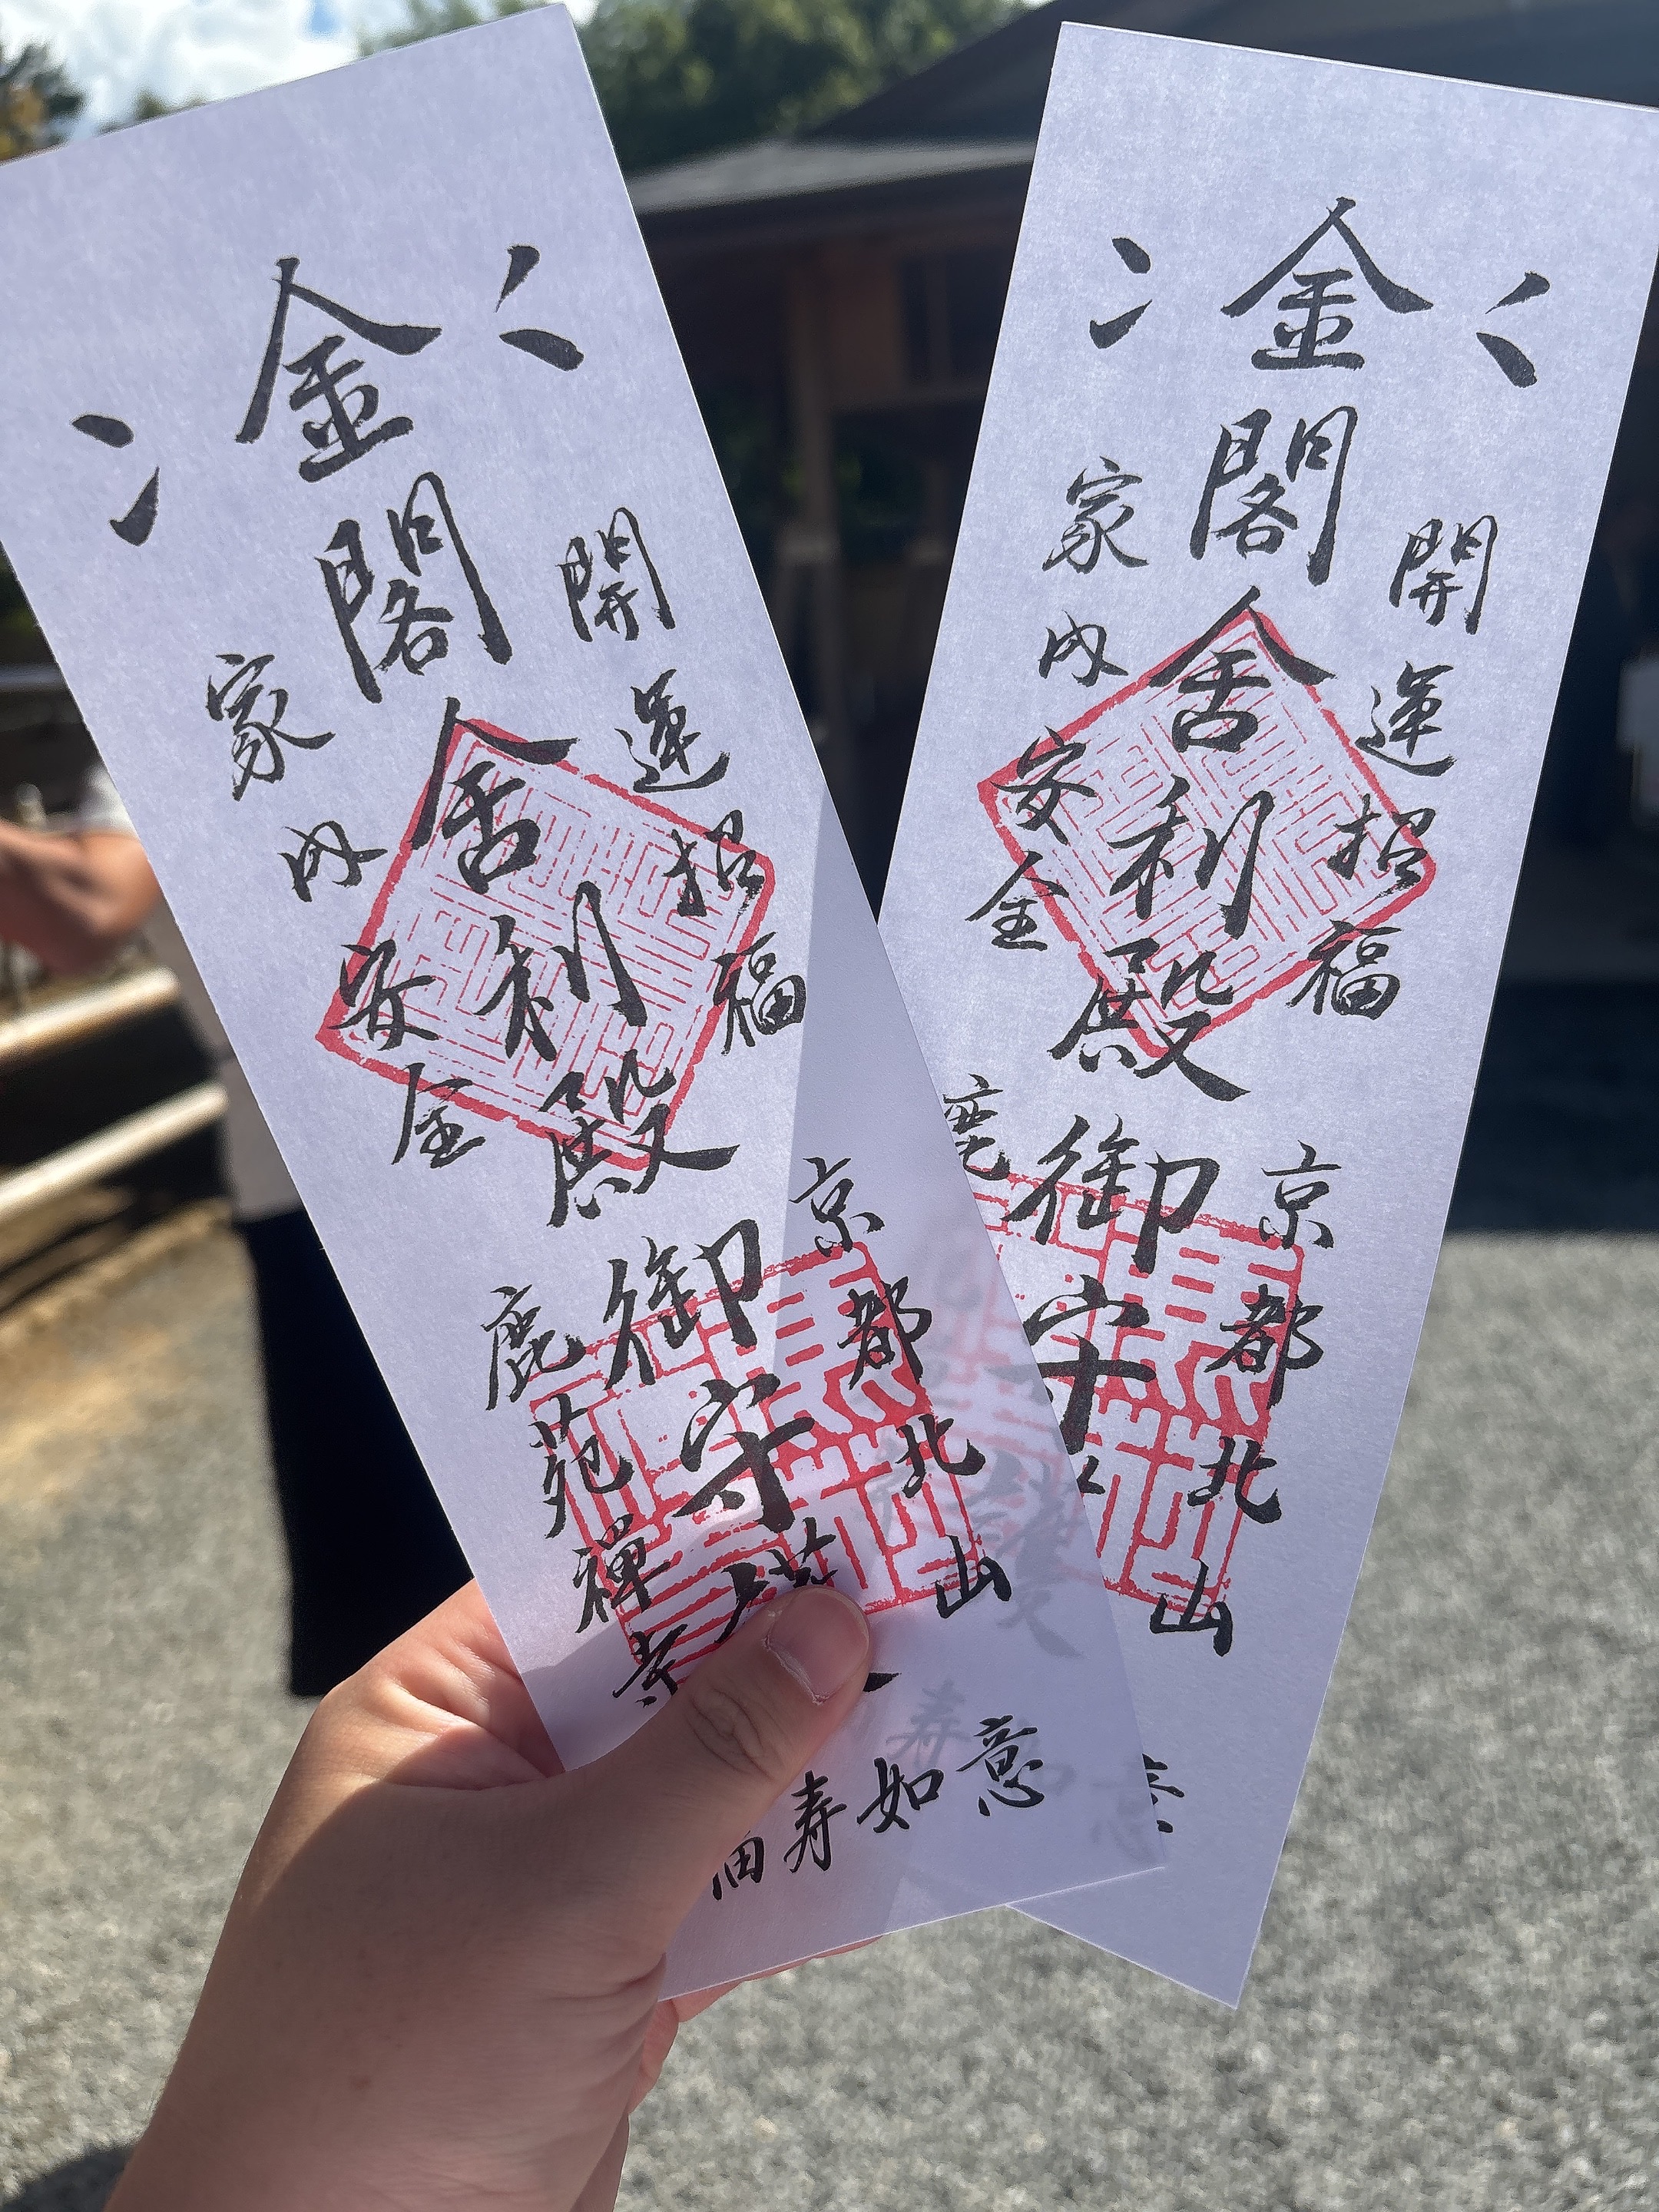 金閣舍利殿御守
開運招福
家内安全
京都北山
鹿苑禅寺
寿如意
金閣舍利殿御守
開運招福
家内安全
京都北山
鹿